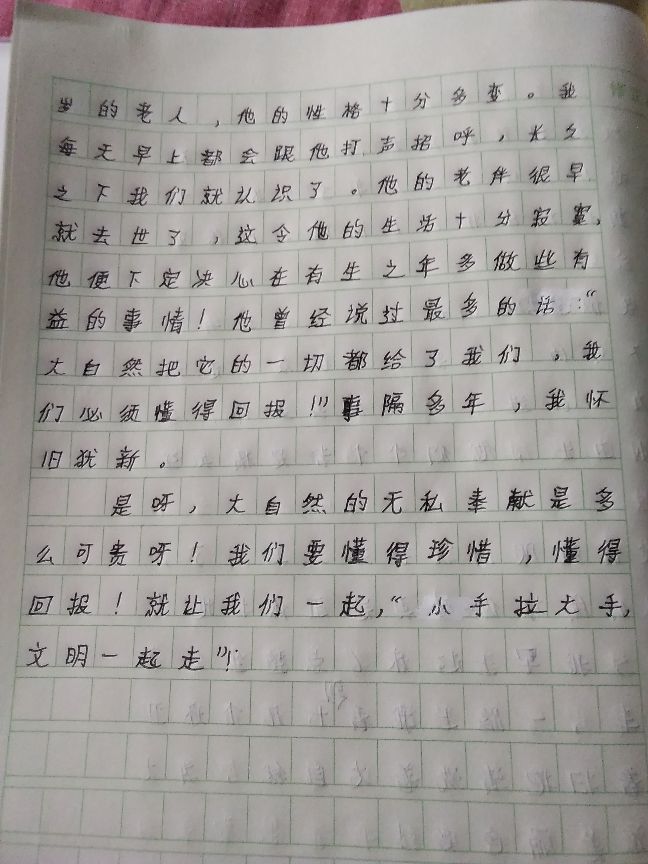 岁的老人，他的性格十分多变。我
每天早上都会跟他打声招呼，长久
之下我们就认识了。他的老伴很早
就去世了，这令他的生活十分寂寞，
他便下定决心在有生之年多做些有
益的事情！他曾经说过最多的话：“
大自然把它的一切都给了我们。我
们必须懂得回报！”事隔多年，我怀
旧犹新。
是呀，大自然的无私奉献是多
么可贵呀！我们要懂得珍惜，懂得
回报！就让我们一起，“小手拉大手，
文明一起走”！